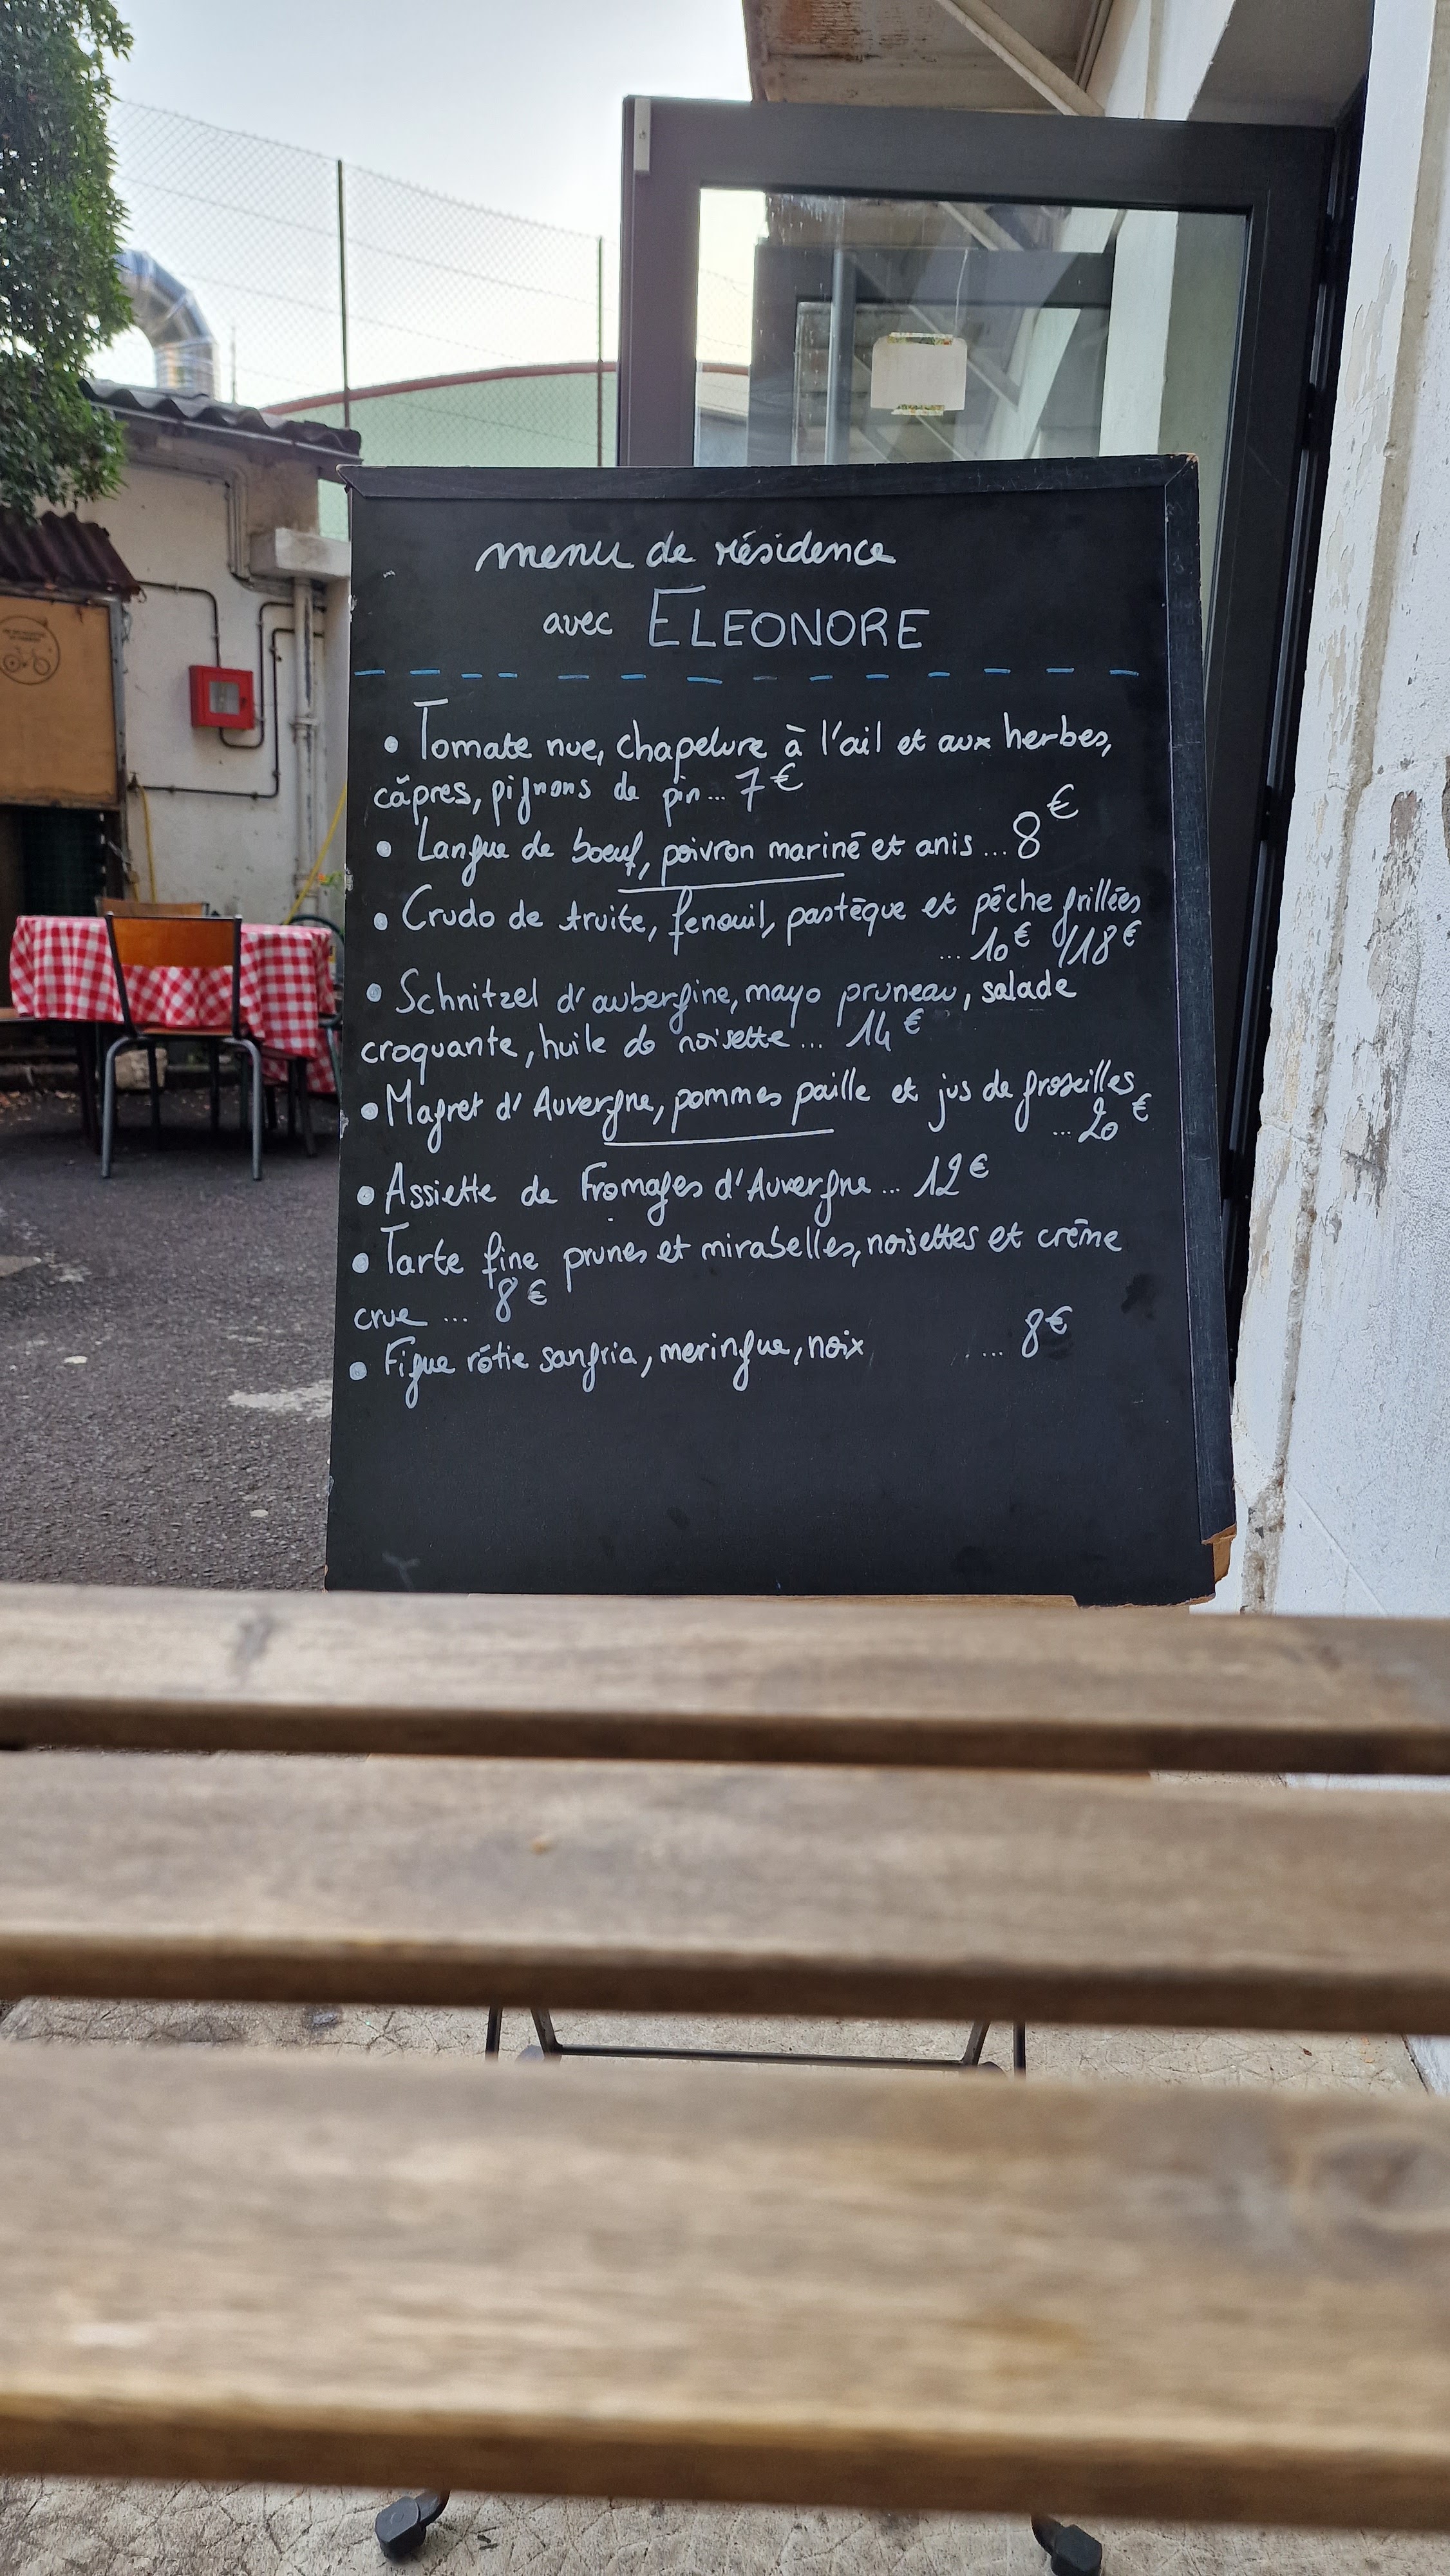 menu de résidence
avec ELEONORE
• Tomate nue, chapelure à l'ail et aux herbes,
câpres, pignons de pin... 7€
• Langue de boeuf, poivron mariné et anis ... 8€
• Crudo de truite, fenouil, pastèque et pêche grillées
... 10€ /18€
• Schnitzel d'aubergine, mayo pruneau, salade
croquante, huile de noisette ... 14€
• Magret d'Auvergne, pommes paille et jus de groseilles
... 20€
• Assiette de Fromages d'Auvergne ... 12€
• Tarte fine prunes et mirabelles, noisettes et crème
crue ... 8€
• Figue rôtie sangria, meringue, noix ... 8€